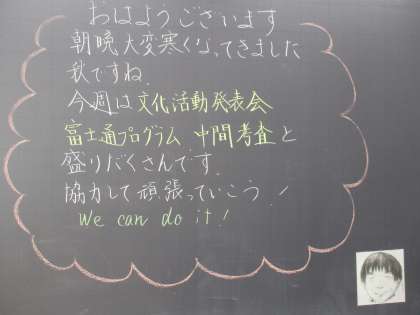 おはようございます
朝晩大変寒くなってきました
秋ですね
今週は文化活動発表会
富士通プログラム 中間考査と
盛りだくさんです
協力して頑張っていこう!
We can do it!